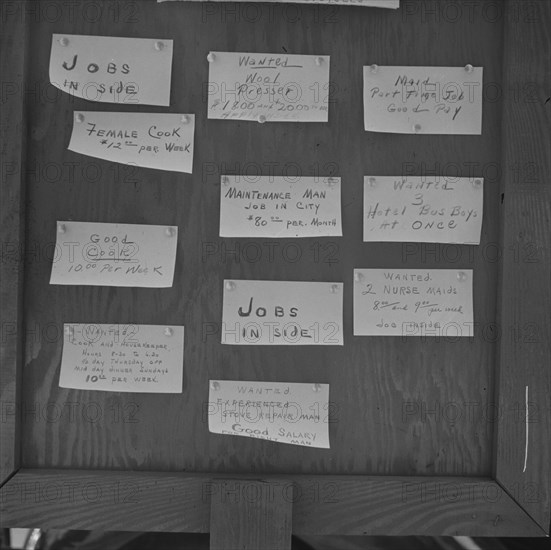 JOBS
IN SIDE
FEMALE COOK
$12.00 PER WEEK
GOOD
COOK
10.00 PER WEEK
WANTED
COOK AND HOUSEKEEPER
HOURS 8:30 TO 6:30
½ DAY THURSDAY OFF
MID DAY DINNER SUNDAYS
10.00 PER WEEK
Wanted
Wool
Presser
$1800 and $2000
MAINTENANCE MAN
JOB IN CITY
$80.00 PER. MONTH
JOBS
IN SIDE
WANTED
EXPERIENCED
STOVE REPAIR MAN
Good SALARY
MAN
Maid
Part Time Job
Good Pay
Wanted
3
Hotel Bus Boys
At ONCE
WANTED
2 NURSE MAIDS
8.00 and 9.00 per week
JOB INSIDE